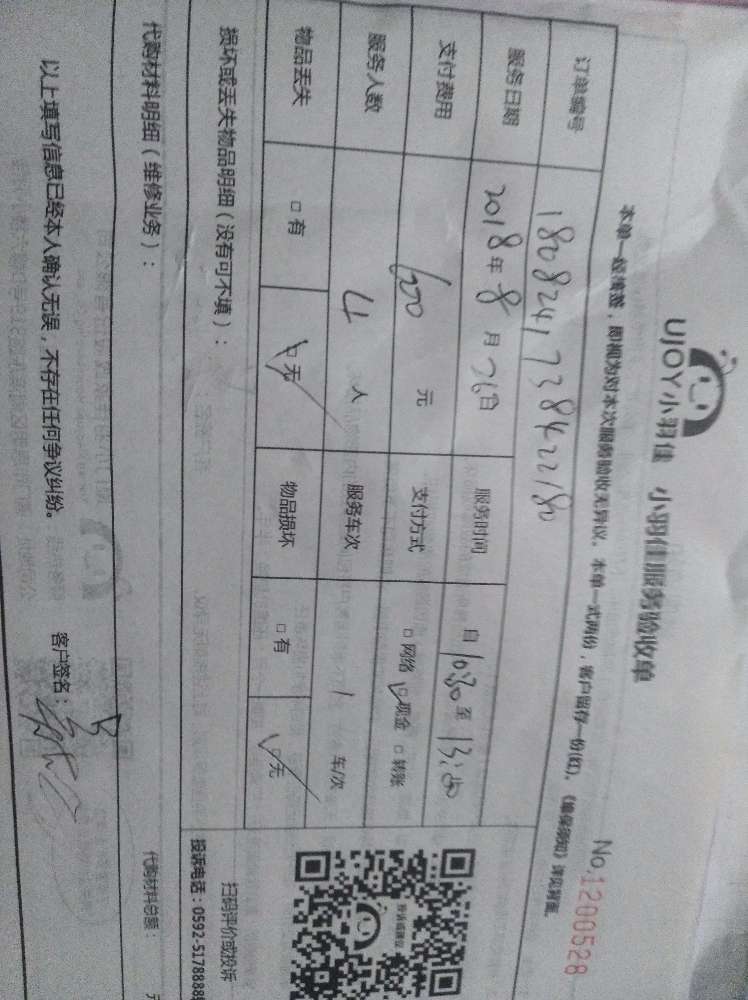 UJOY小羽佳 小羽佳服务验收单
No.1200528
本单一经签签，即视为对本次服务验收无异议。本单一式两份，客户留存一份(红)。《维保须知》详见背面。
订单编号 1808241738422180
服务日期 2018年8月26日 服务时间 自10:30至13:50
支付费用 600元 支付方式 □网络 □现金 □转账
服务人数 4人 服务车次 1车/次
物品丢失 □有 □无 物品损坏 □有 □无
损坏或丢失物品明细（没有可不填）：
投诉或建议
扫码评价或投诉
投诉电话：0592-5178888
代购材料明细（维修业务）： 代购材料总额： 元
以上填写信息已经本人确认无误，不存在任何争议纠纷。 客户签名：